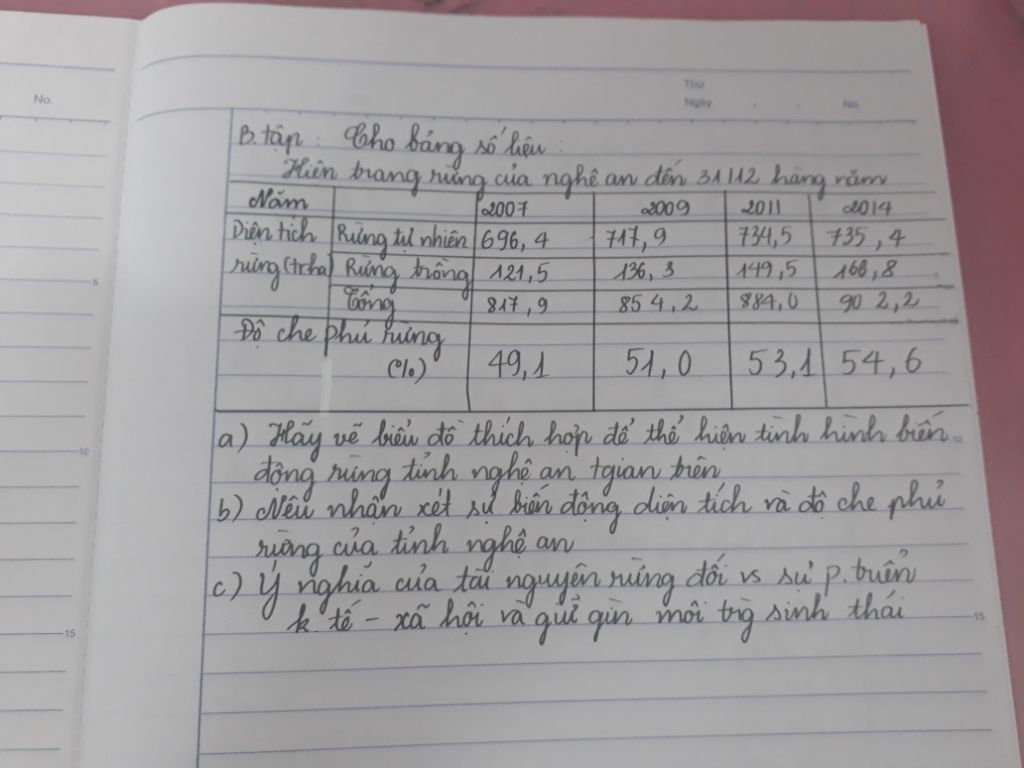 No.
Thứ
Ngày . . No.
B. tập : Cho bảng số liệu :
Hiện trạng rừng của nghệ an đến 31/12 hàng năm
Năm 2007 2009 2011 2014
Diện tích Rừng tự nhiên 696,4 717,9 734,5 735,4
rừng (trha) Rừng trồng 121,5 136,3 149,5 166,8
Tổng 817,9 854,2 884,0 902,2
Độ che phủ rừng
(%) 49,1 51,0 53,1 54,6
a) Hãy vẽ biểu đồ thích hợp để thể hiện tình hình biến
động rừng tỉnh nghệ an tgian trên
b) Nêu nhận xét sự biến động diện tích và độ che phủ
rừng của tỉnh nghệ an
c) Ý nghĩa của tài nguyên rừng đối vs sự p. triển
k tế - xã hội và giữ gìn môi trg sinh thái
5
10
15
5
10
15